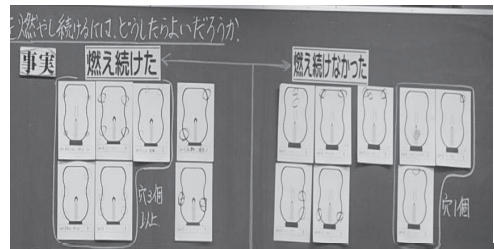 を燃やし続けるには、どうしたらよいだろうか。
事実
燃え続けた
燃え続けなかった
穴3個
以上
穴1個